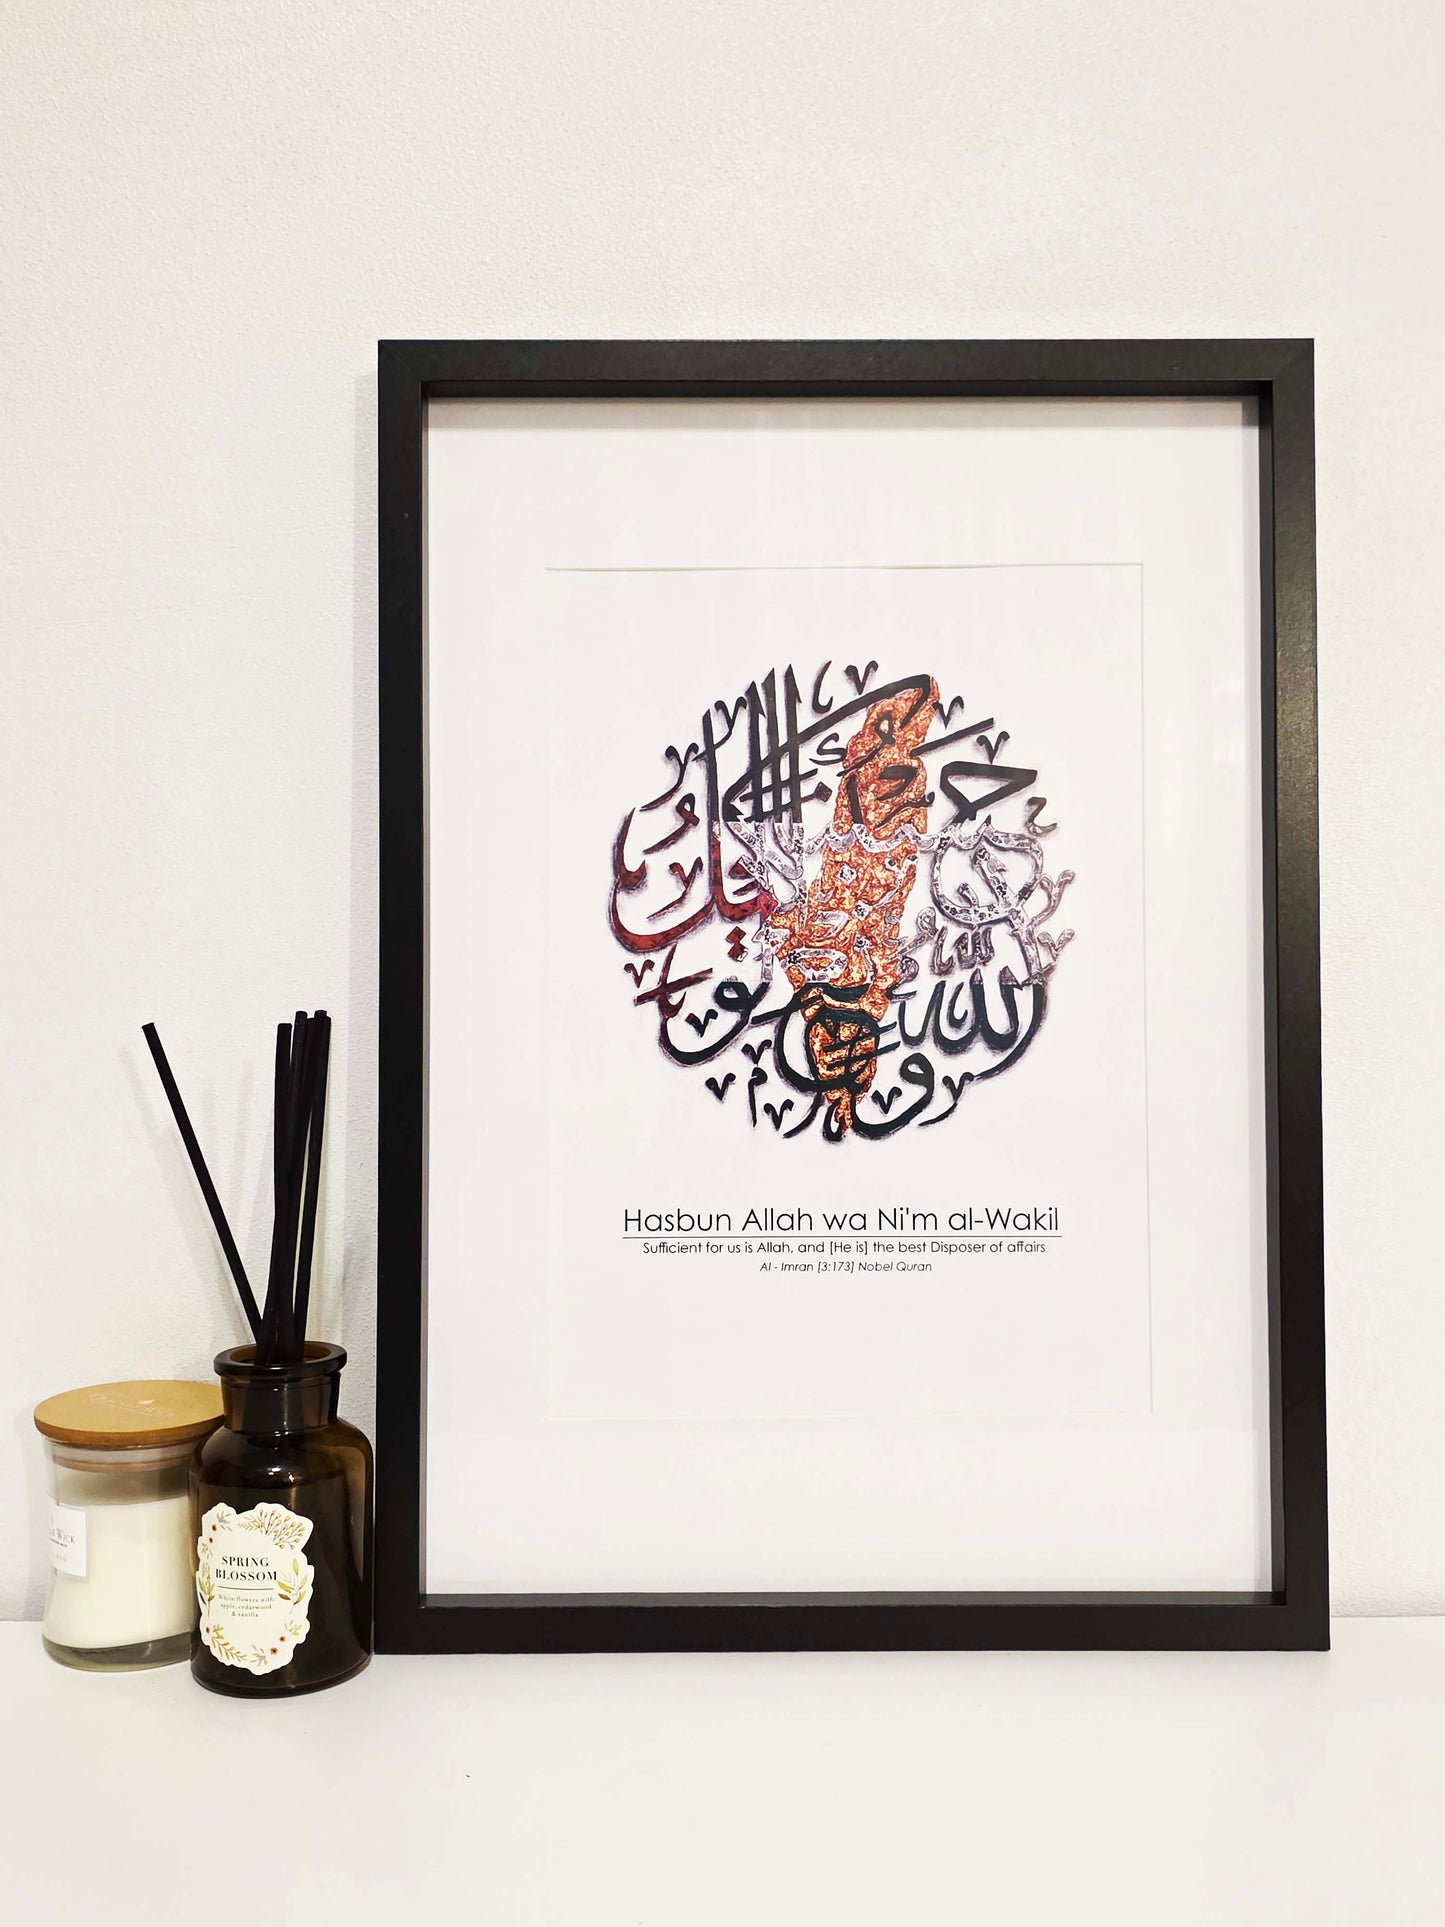 حسبنا الله ونعم الوكيل
Hasbun Allah wa Ni'm al-Wakil
Sufficient for us is Allah, and [He is] the best Disposer of affairs
Al - Imran [3:173] Nobel Quran
Wick
SPRING
BLOSSOM
White flowers with
apple, cedarwood
& vanilla